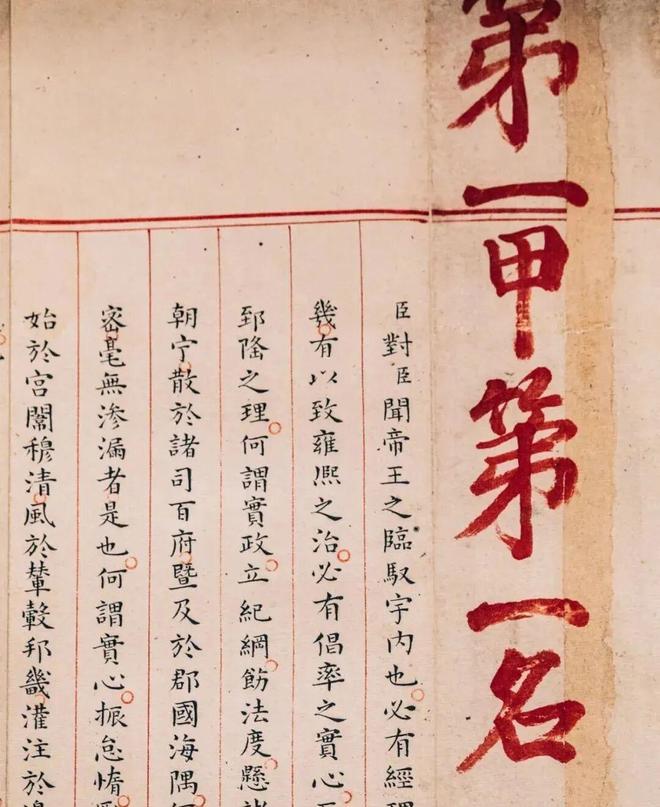 第一甲第一名
臣對臣聞帝王之臨馭宇内也必有經
幾有以致雍熈之治必有倡率之實心
郅隆之理何謂實政立紀綱飭法度懸
朝宁散於諸司百府暨及於郡國海隅
宻毫無滲漏者是也何謂實心振怠惰
始於宫闈穆清風於輦轂邦畿灌注於